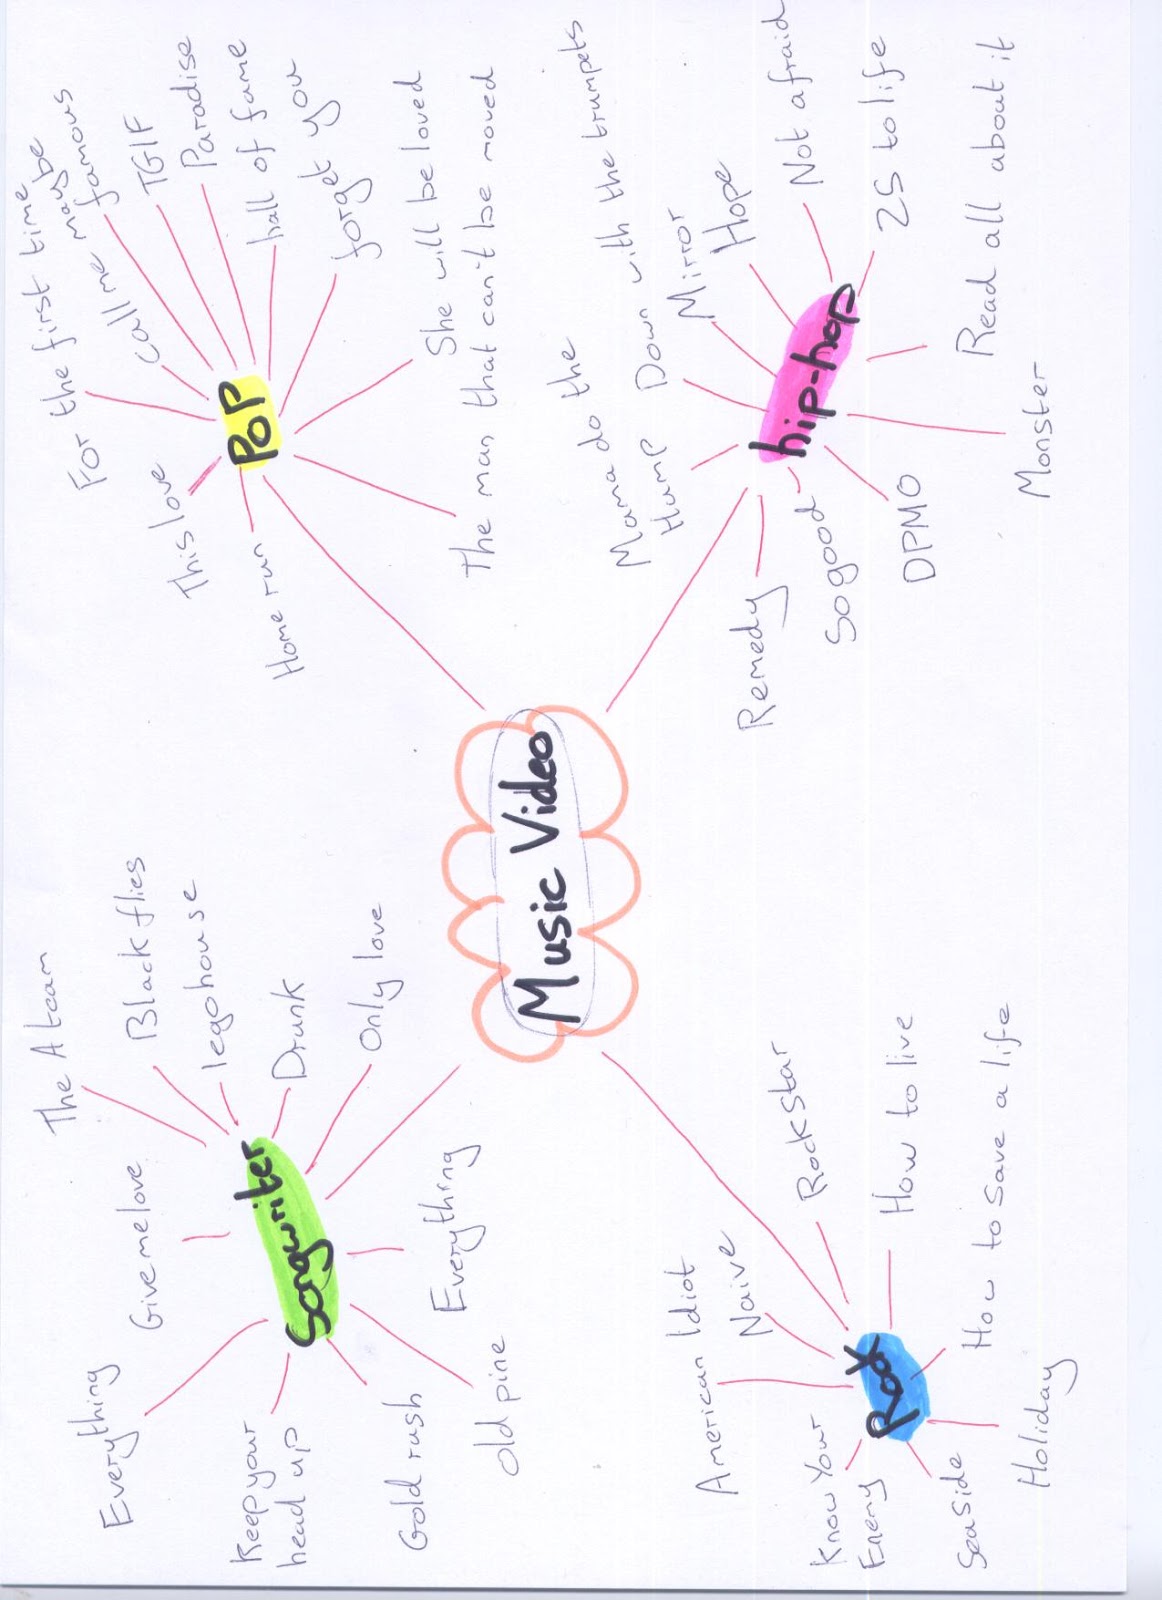 Music Video
Songwriter
Everything
Give me love
The A team
Black flies
legohouse
Drunk
Only love
Everything
Old pine
Gold rush
Keep your
head up
POP
Home run
This love
For the first time
Call me maybe
famous
TGIF
Paradise
hall of fame
forget you
She will be loved
The man that can't be moved
Rock
Know Your
Enemy
American Idiot
Naive
Rockstar
How to live
How to save a life
Holiday
Seaside
hip-hop
Remedy
Mama do the
Hump
Down with the trumpets
Mirror
Hope
Not afraid
25 to life
Read all about it
Monster
DPMO
So good